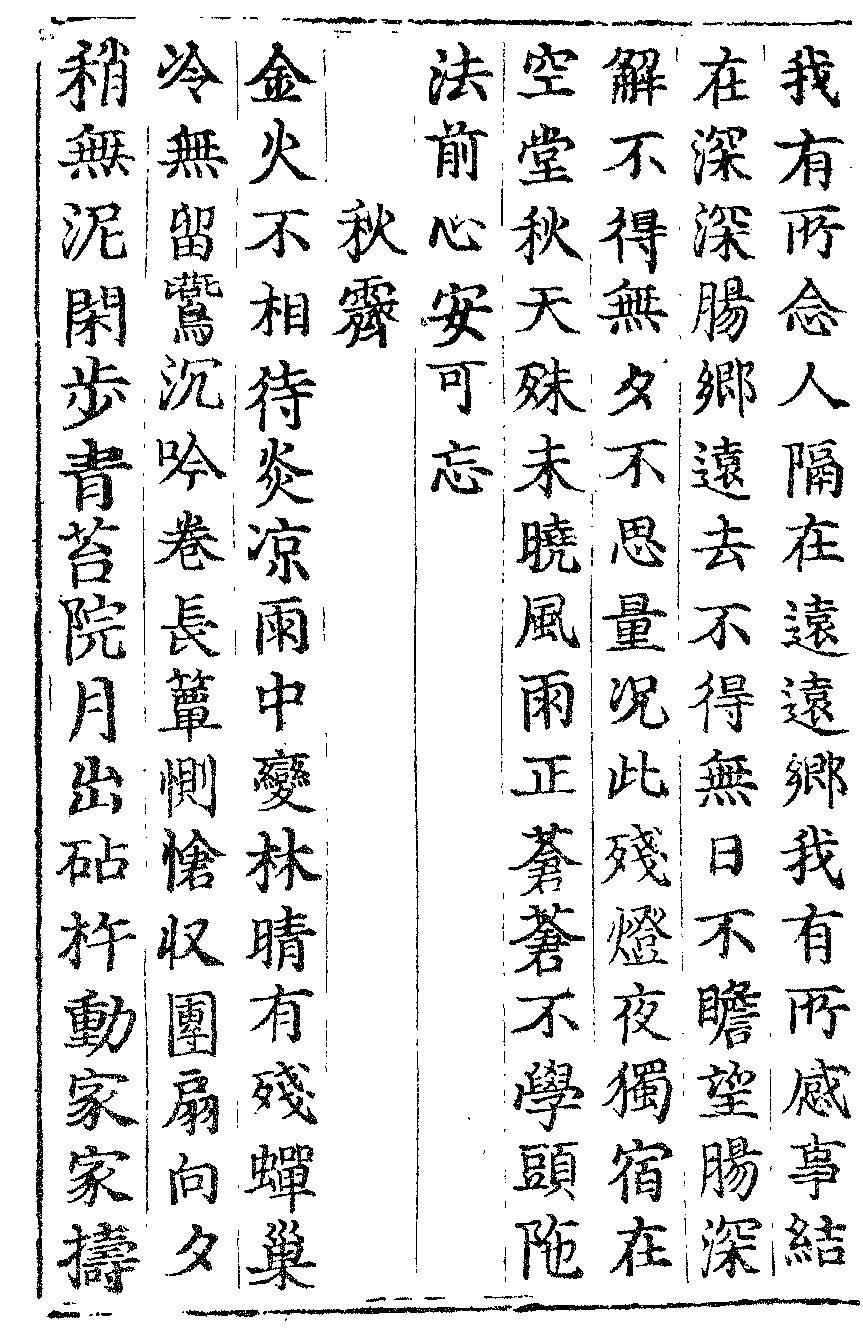 我有所念人隔在遠遠鄉我有所感事結
在深深腸鄉遠去不得無日不瞻望腸深
解不得無夕不思量况此殘燈夜獨宿在
空堂秋天殊未曉風雨正蒼蒼不學頭陁
法前心安可忘
秋霽
金火不相待炎凉雨中變林晴有殘蟬巢
冷無留鷰沉吟卷長簟惻愴収團扇向夕
稍無泥閑步青苔院月出砧杵動家家擣